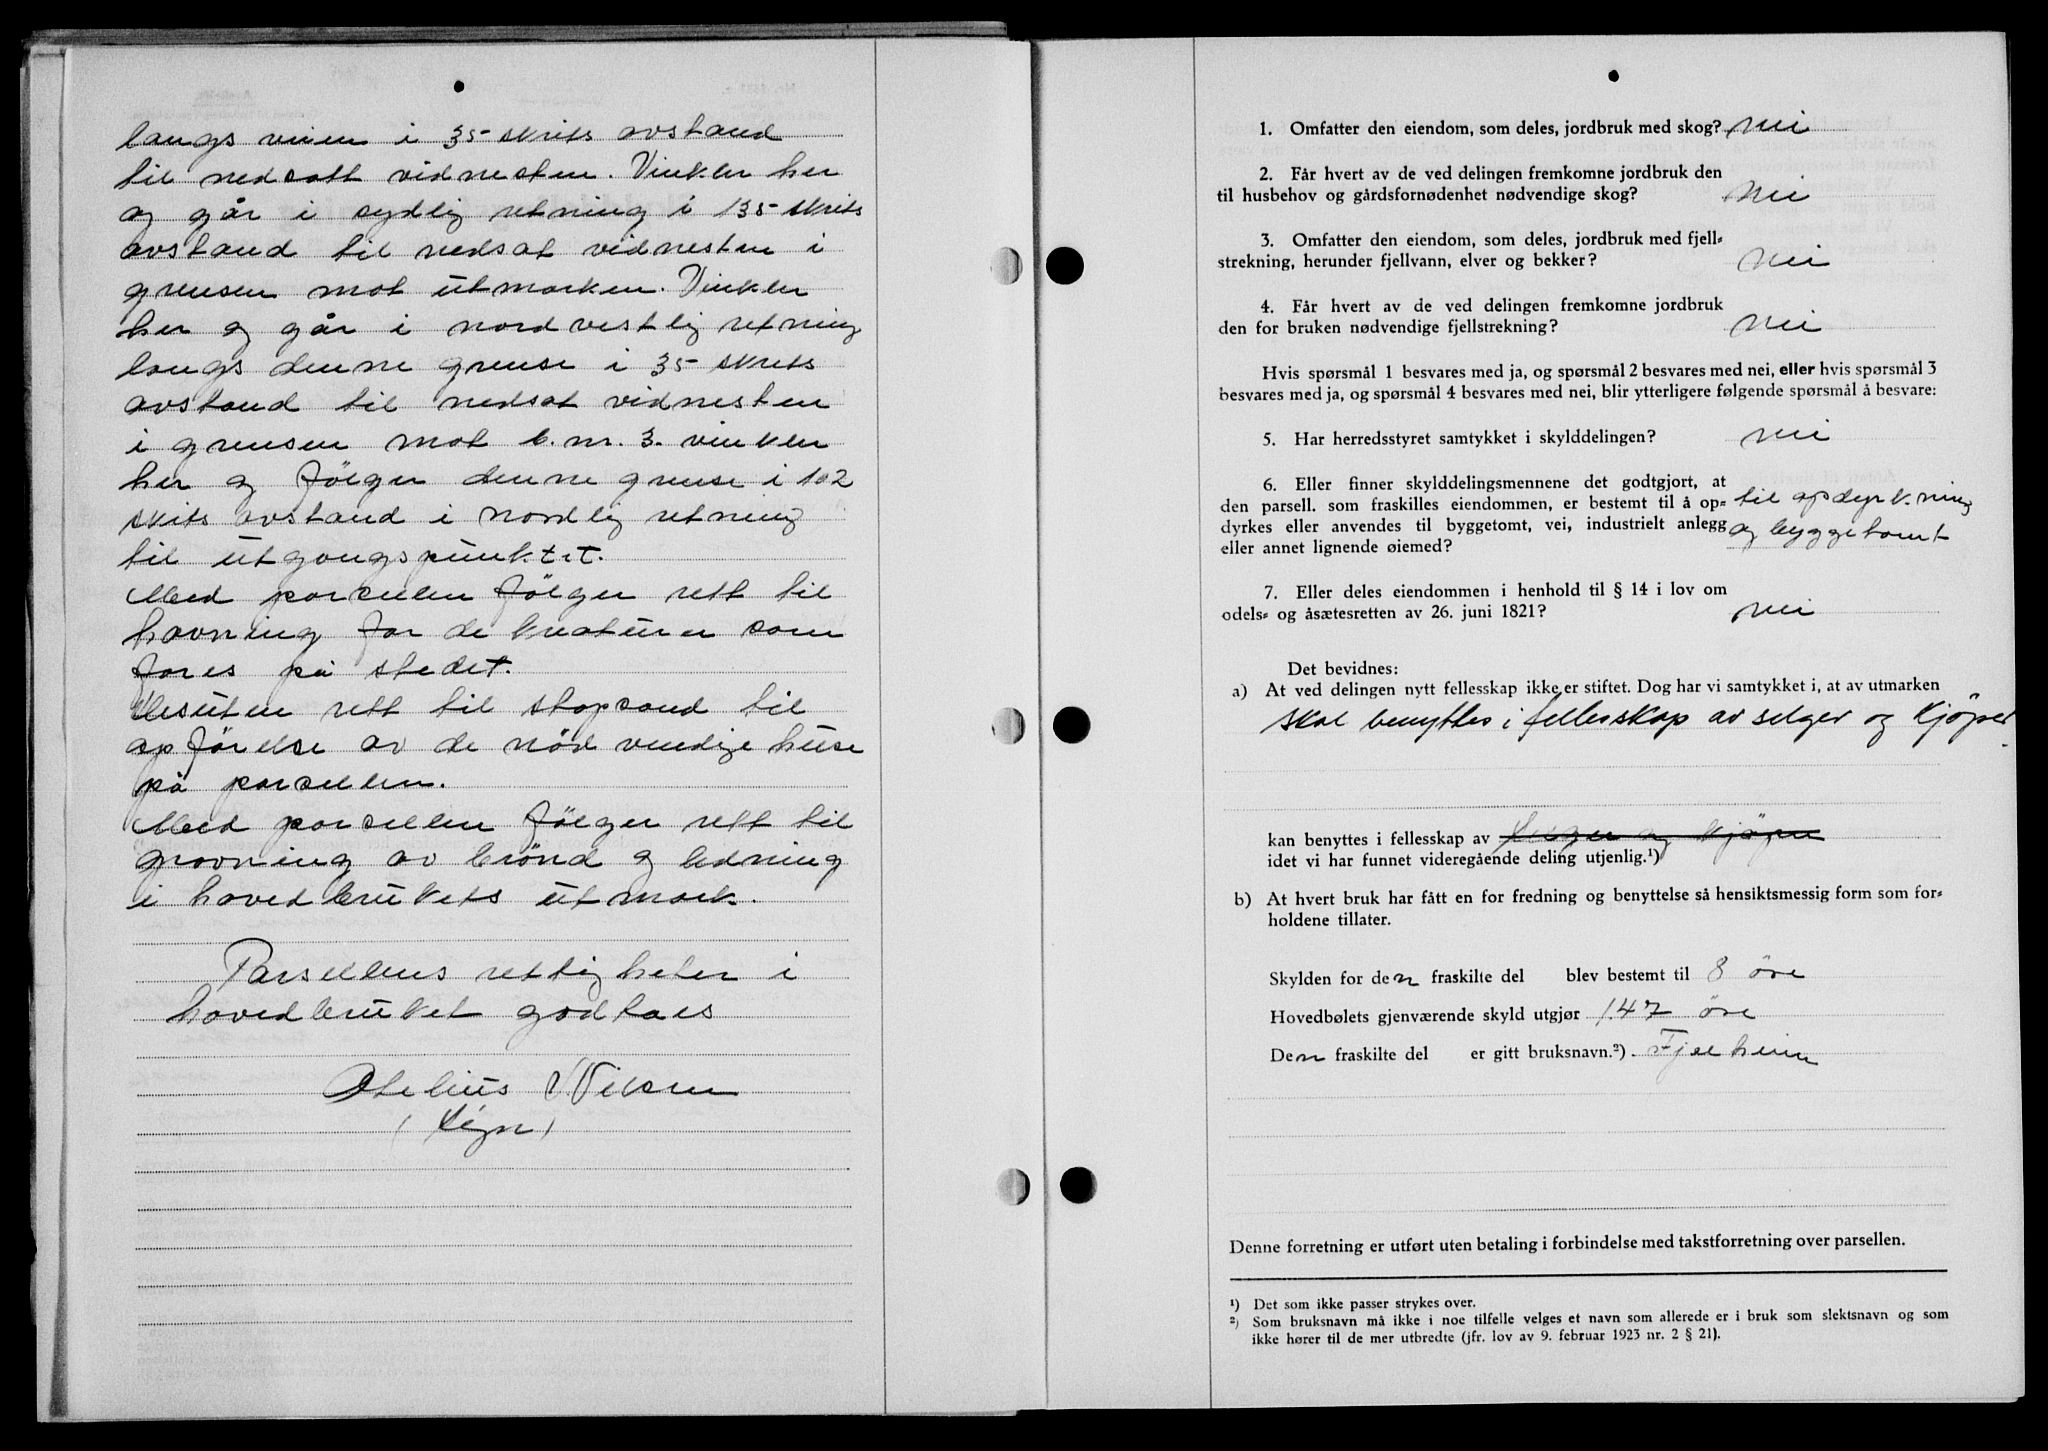 langs veien i 35 skrits avstand
til nedsatt vidnesten. Vinkler her
og går i sydlig retning i 135 skrits
avstand til nedsat vidnesten i
grensen mot utmarken. Vinkler
her og går i nordvestlig retning
langs denne grense i 35 skrits
avstand til nedsat vidnesten
i grensen mot b.nr. 3. vinkler
her og følger denne grense i 102
skrits avstand i nordlig retning
til utgangspunktet.
Med parsellen følger rett til
havning for de kreaturer som
fores på stedet.
Desuten rett til støpsand til
opførelse av de nødvendige huse
på parsellen.
Med parsellen følger rett til
gravning av brønd og ledning
i hovedbrukets utmark.
Parsellens rettigheter i
hovedbruket godtaes
Nilsen
(sign)
1. Omfatter den eiendom, som deles, jordbruk med skog? nei
2. Får hvert av de ved delingen fremkomne jordbruk den
til husbehov og gårdsfornødenhet nødvendige skog? nei
3. Omfatter den eiendom, som deles, jordbruk med fjell-
strekning, herunder fjellvann, elver og bekker? nei
4. Får hvert av de ved delingen fremkomne jordbruk
den for bruken nødvendige fjellstrekning? nei
Hvis spørsmål 1 besvares med ja, og spørsmål 2 besvares med nei, eller hvis spørsmål 3
besvares med ja, og spørsmål 4 besvares med nei, blir ytterligere følgende spørsmål å besvare:
5. Har herredsstyret samtykket i skylddelingen? nei
6. Eller finner skylddelingsmennene det godtgjort, at
den parsell. som fraskilles eiendommen, er bestemt til å op-
dyrkes eller anvendes til byggetomt, vei, industrielt anlegg
eller annet lignende øiemed?
til opdyrkning
og byggetomt
7. Eller deles eiendommen i henhold til § 14 i lov om
odels- og åsætesretten av 26. juni 1821? nei
Det bevidnes:
a) At ved delingen nytt fellesskap ikke er stiftet. Dog har vi samtykket i, at av utmarken
skal benyttes i fellesskap av selger og kjøper.
kan benyttes i fellesskap av selger og kjøper
idet vi har funnet videregående deling utjenlig.¹)
b) At hvert bruk har fått en for fredning og benyttelse så hensiktsmessig form som for-
holdene tillater.
Skylden for den fraskilte del blev bestemt til 8 øre
Hovedbølets gjenværende skyld utgjør 1.47 øre
Den fraskilte del er gitt bruksnavn.²) Fjelheim
Denne forretning er utført uten betaling i forbindelse med takstforretning over parsellen.
¹) Det som ikke passer strykes over.
²) Som bruksnavn må ikke i noe tilfelle velges et navn som allerede er i bruk som slektsnavn og som
ikke hører til de mer utbredte (jfr. lov av 9. februar 1923 nr. 2 § 21).